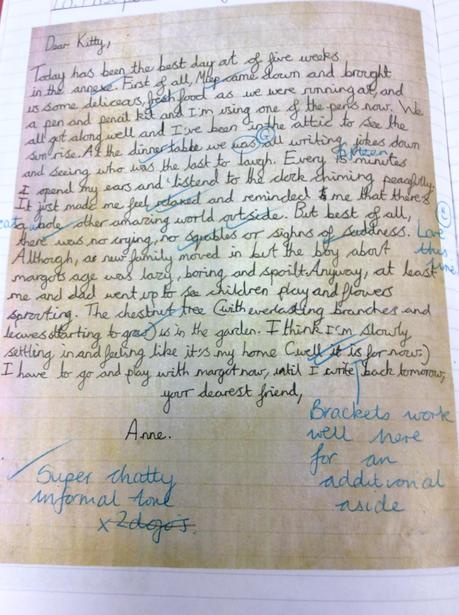 Dear Kitty,
Today has been the best day at of five weeks
in the annexe. First of all, Miep came down and brought
us some delicears, fresh food as we were running at, and
a pen and pencil kit and I'm using one of the pens now. We
all got along well and I've been in the attic to see the
sun rise. At the dinner table we was all writing jokes down
and seeing who was the last to laugh. Every 15 minutes
fifteen
I opend my ears and listend to the clock chiming peacefully.
It just made me feel relaxed and reminded me that there's
a whole other amazing world outside. But best of all,
there was no crying, no squables or sighns of saddness.
Love this line
Although, a new family moved in but the boy about
margots age was lazy, boring and spoilt. Anyway, at least
me and dad went up to see children play and flowers
sprouting. The chestnut tree (with everlasting branches and
leaves starting to grow) is in the garden. I think I'm slowly
settling in and feeling like it's my home (well it is for now.)
I have to go and play with margot now, until I write back tomorow,
your dearest friend,
Anne.
Brackets work
well here
for an
additional
aside
Super chatty
informal tone
x 2 dojos